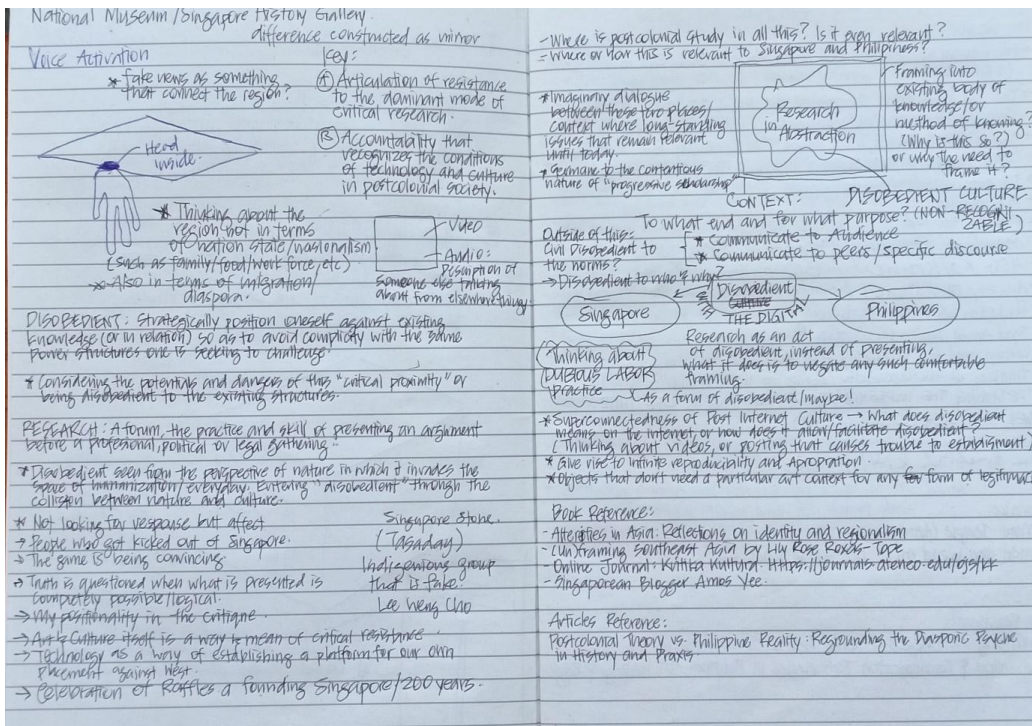 National Museum/Singapore History Gallery.
difference constructed as mirror
Voice Activation
* Fake news as something
that connect the region?
Head
inside.
* Thinking about the
region not in terms
of nation state/nasionalism
(such as family/food/work force, etc)
* Also in terms of migration/
diaspora.
Key:
(A) Articulation of resistance
to the dominant mode of
critical research.
(B) Accountability that
recognizes the conditions
of technology and culture
in postcolonial society.
Video
Audio:
Desciption of
someone else talking
about from elsewhere
DISOBEDIENT: Strategically position oneself against existing
knowledge (or in relation) so as to avoid complicity with the same
power structures one is seeking to challenge.
* Considering the potentials and dangers of this "critical proximity" or
being disobedient to the existing structures.
RESEARCH: A forum, the practice and skill of presenting an argument
before a profesional, political or legal gathering.
* Disobedient seen from the perspective of nature in which it invades the
space of humanization/everyday. Entering "disobedient" through the
collision between nature and culture.
* Not looking for respouse but affect
→ People who got kicked out of Singapore.
→ The game is being convincing.
→ Truth is questioned when what is presented is
completely possible/logical.
→ My positionality in the critique
→ Art & Culture itself is a way & mean of critical resistance.
→ Technology as a way of establishing a platform for our own
placement against West.
→ Celebration of Raffles a founding Singapore/200 years.
Singapore Stone.
(Tasaday)
Indigenious group
that is fake!
Lee Weng Cho
- Where is postcolonial study in all this? Is it even relevant?
- Where or how this is relevant to Singapore and Philipiness?
* Imaginary dialogue
between these two places/
context where long-standing
issues that remain relevant
until today.
* Germane to the contentious
nature of "progressive scholarship"
Research
in Abstraction
Framing into
existing body of
knowledge/or
method of knowing?
(Why is this so?)
or why the need to
frame it?
CONTEXT: DISOBEDIENT CULTURE
To what end and for what purpose? (NON-RECOGNI
ZABLE)
Outside of this:
Civil Disobedient to
the norms?
→ Disobedient to who & why?
* Communicate to Audience
* Communicate to peers/specific discourse
Singapore
Disobedient
Culture
THE DIGITAL
Philippines
Thinking about
DUBIOUS LABOR
practice
Research as an act
of disobedient, instead of presenting,
what it does is to negate any such comfortable
framing.
As a form of disobedient/maybe!
* Superconnectedness of Post Internet Culture → What does disobedient
means on the internet, or how does it allow/facilitate disobedient?
(Thinking about videos, or posting that causes trouble to establisment)
* Give rise to infinite reproducibility and Apropration.
* Objects that don't need a particular art context for any for form of legitimacy
Book Reference:
- Alterities in Asia: Reflections on identity and regionalism
- (Un)framing Southeast Asia by Lily Rose Roxas-Tope
- Online Journal: Kritika Kultura. https://journals.ateneo.edu/ojs/kk
- Singaporean Blogger Amos Yee.
Articles Reference:
Postcolonial Theory vs. Philippine Reality: Regrounding the Diasporic Psyche
in History and Praxis